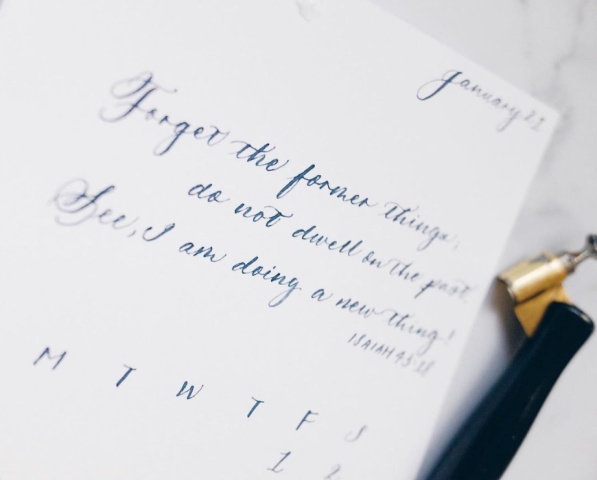 January 21
Forget the former things,
do not dwell on the past
See, I am doing a new thing!
ISAIAH 43:18
M T W T F S
1 2